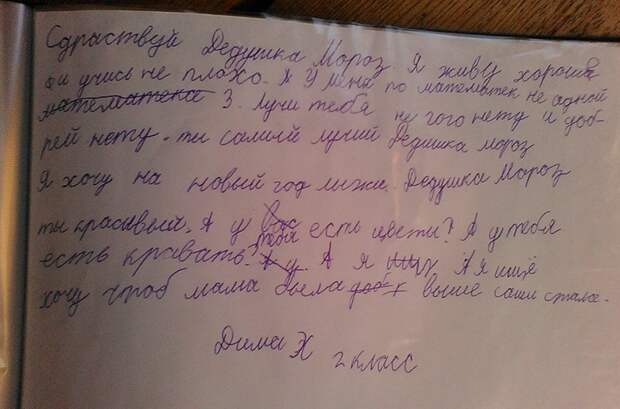 Сдраствуй Дедушка Мороз Я живу хорошо
и учись не плохо. А У меня по математек не адной
математека 3. Лучи тебя ни гого нету и доб-
рей нету. ты самый лучий Дедушка мороз
Я хочу на новый год лыжи. Дедушка Мороз
ты красивый. А у вас тебя есть цвети? А у тебя
есть кравать? А у. А я А я ищё
хочу чтоб мама была выше саши стала.
Дима Х 2 класс